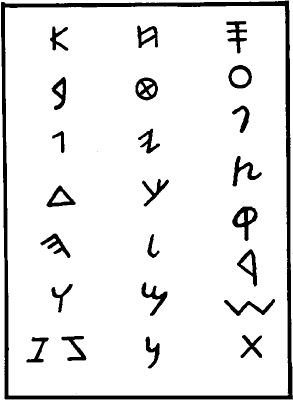 𐤀
𐤁
𐤂
𐤃
𐤄
𐤅
𐤆 𐤆
𐤇
𐤈
𐤉
𐤊
𐤋
𐤌
𐤍
𐤎
𐤏
𐤐
𐤑
𐤒
𐤓
𐤔
𐤕